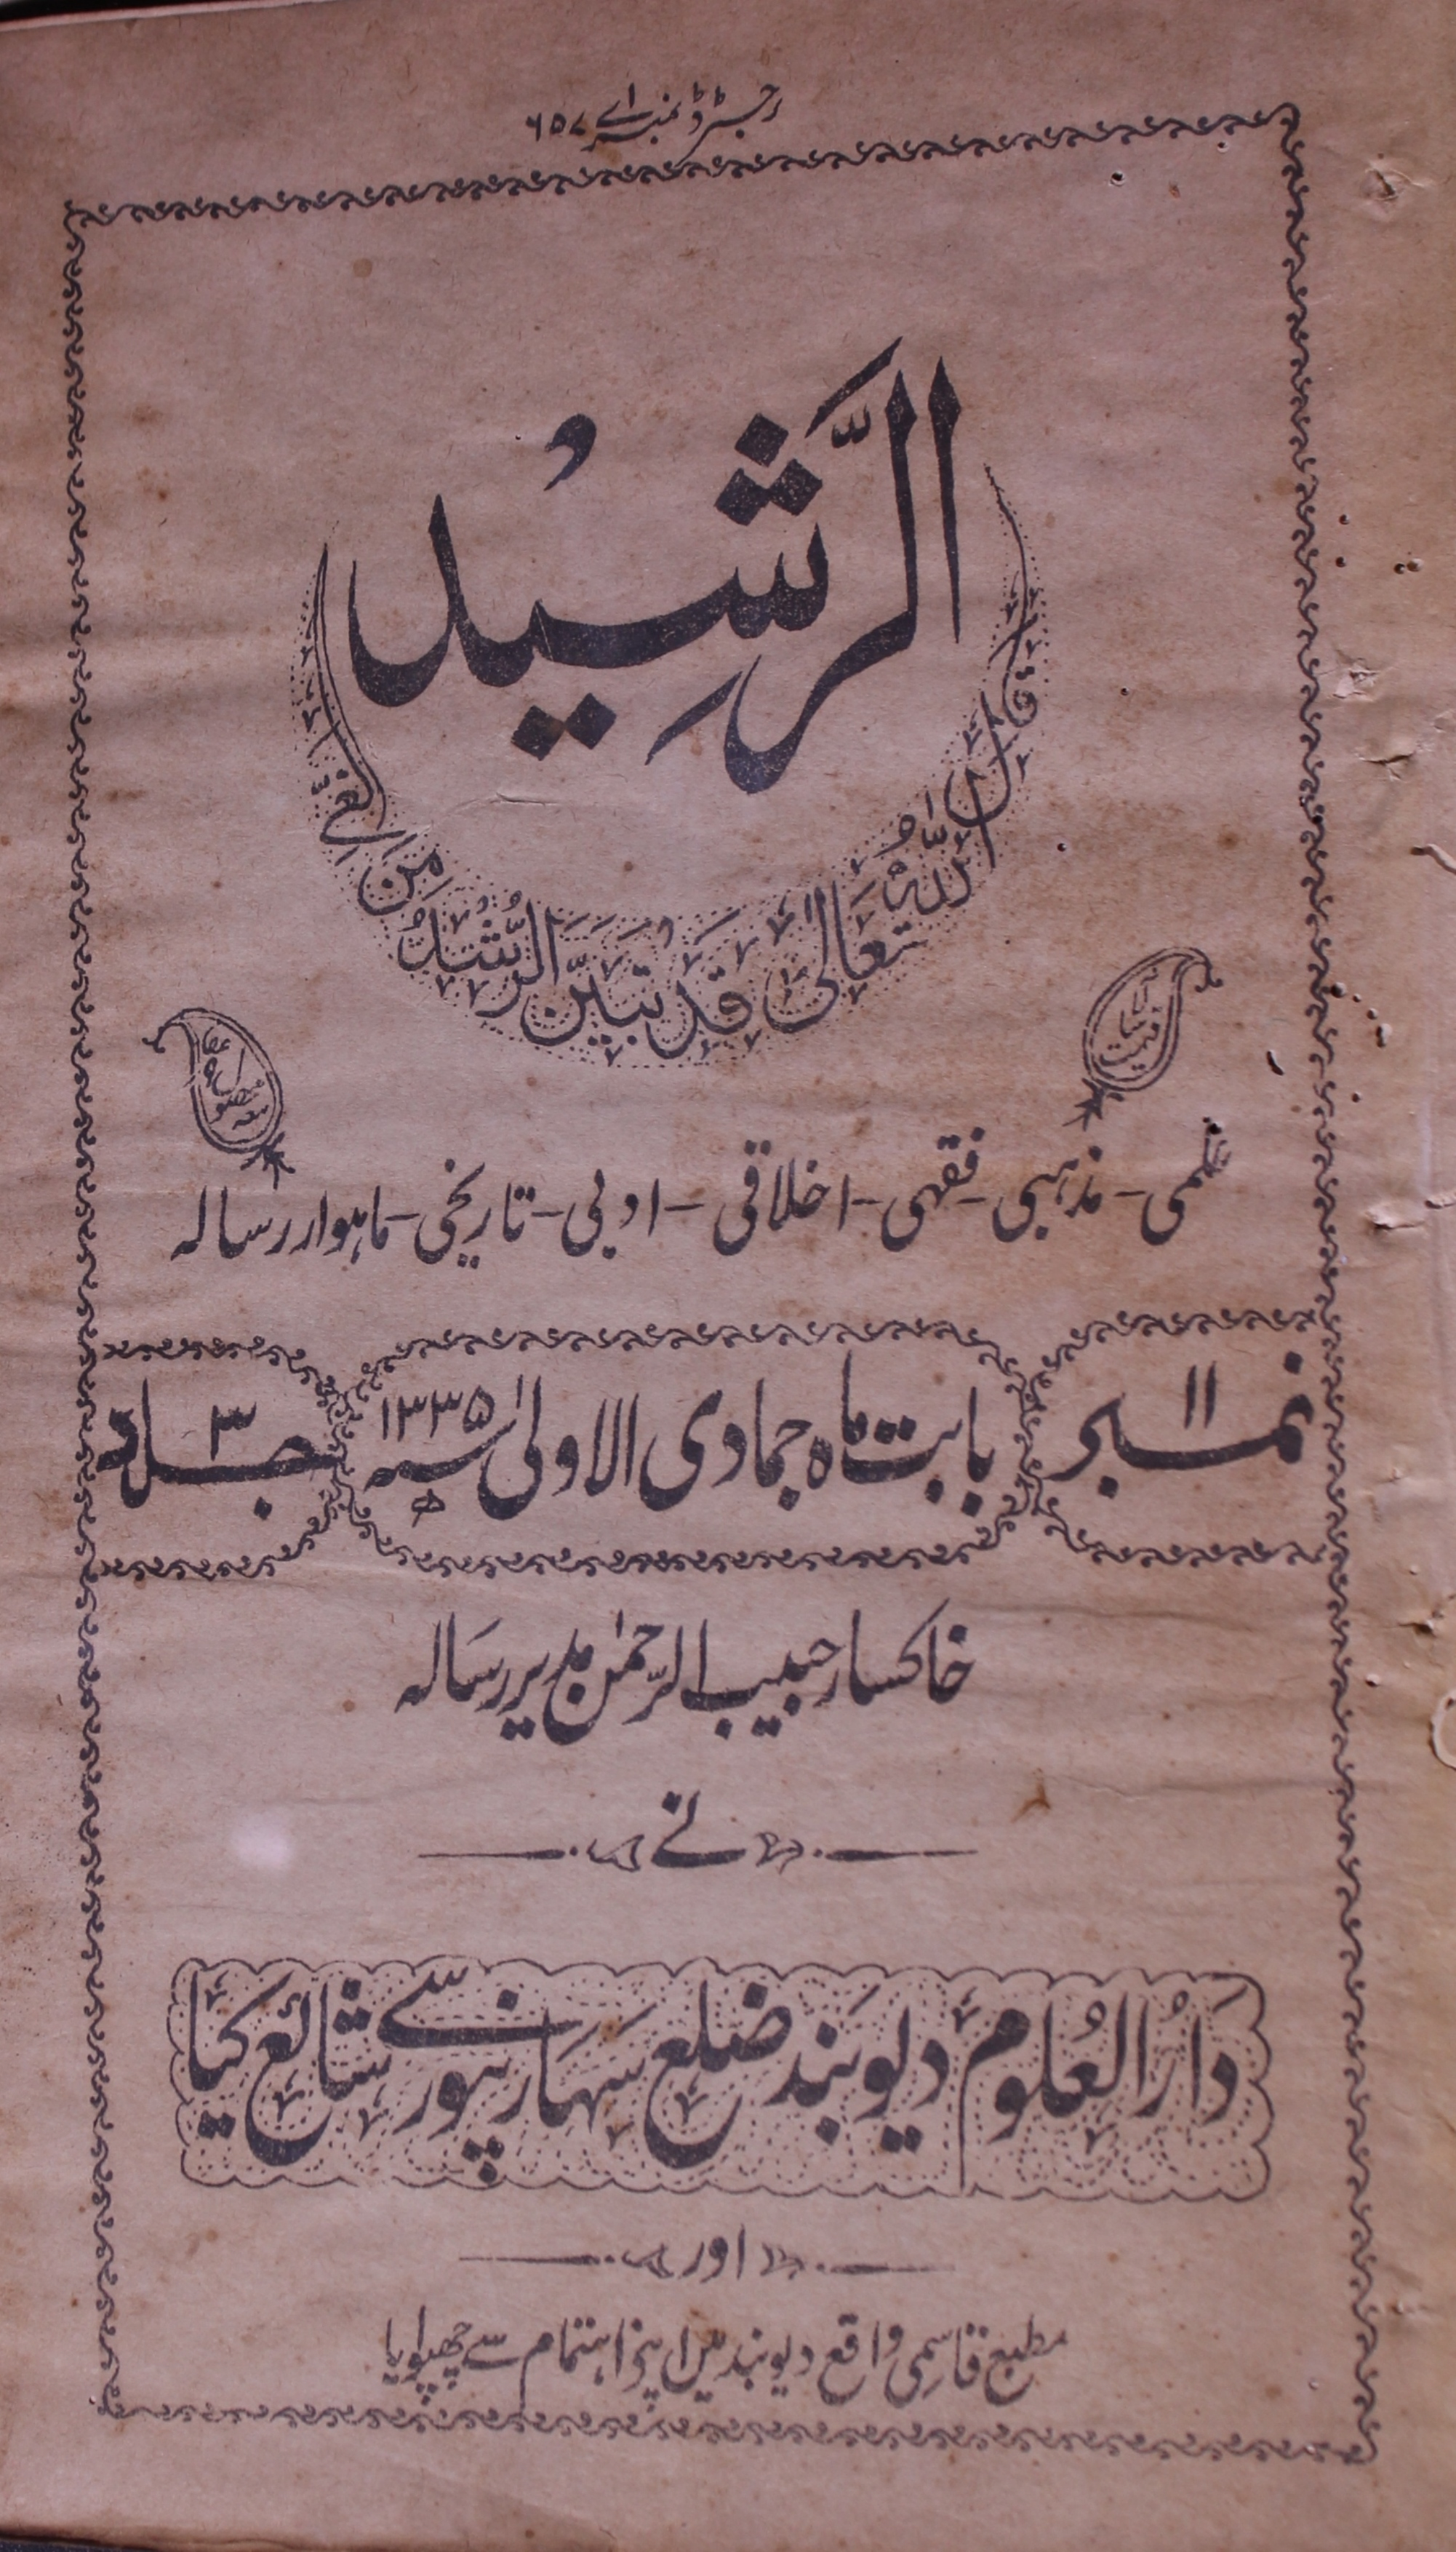 رجسٹرڈ نمبر اے ۶۵۷
الرَّشِیدُ
قال اللّٰہُ تعالیٰ قَدْ تَبَیَّنَ الرُّشْدُ مِنَ الغَیِّ
قیمت سالانہ
معہ محصول
علمی - مذہبی - فقہی - اخلاقی - ادبی - تاریخی - ماہوار رسالہ
نمبر ۱۱
بابت ماہ جمادی الاولیٰ سنہ ۱۳۳۵ھ
جلد ۳
خاکسار حبیب الرحمٰن مدیر رسالہ
نے
دَارُ العُلوم دیوبند ضلع سہارنپور سے شائع کیا
اور
مطبع قاسمی واقع دیوبند میں اپنے اہتمام سے چھپوایا